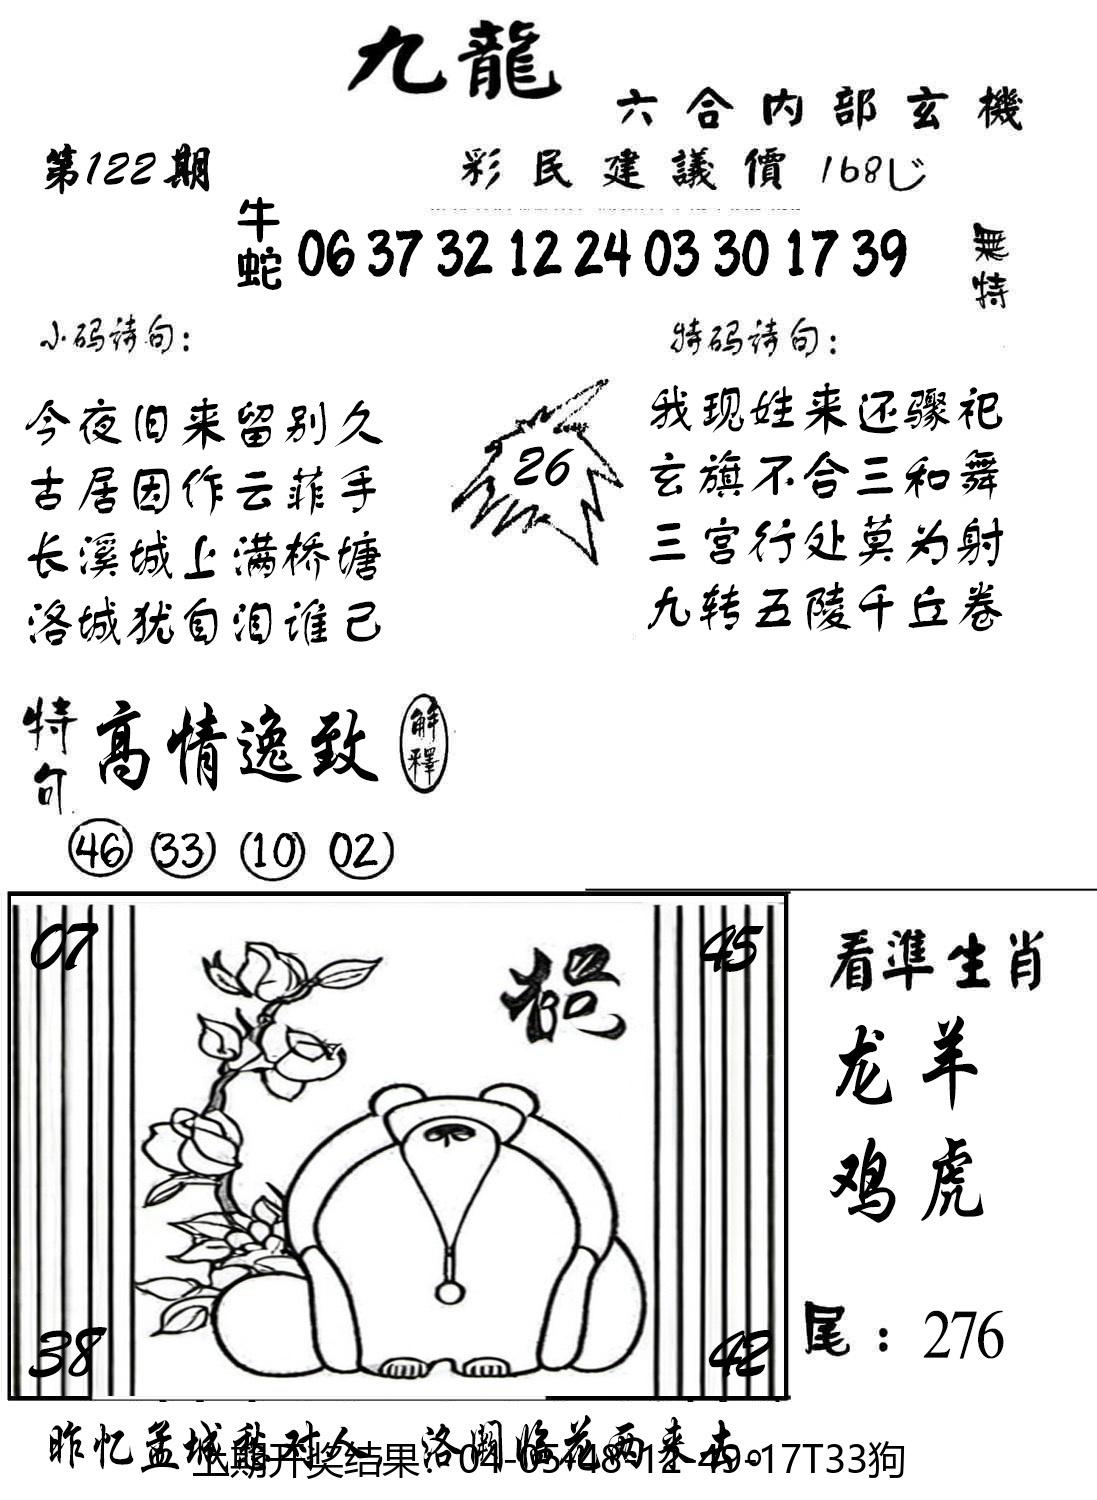 九龍
六合内部玄機
第122期
彩民建議價 168
牛
蛇
06 37 32 12 24 03 30 17 39
無特
小码诗句：
今夜旧来留别久
古居因作云菲手
长溪城上满桥塘
洛城犹自泪谁己
26
特码诗句：
我现姓来还骤祀
玄旗不合三和舞
三宫行处莫为射
九转五陵千丘卷
特句
高情逸致
解釋
46 33 10 02
07
45
38
42
看準生肖
龙羊
鸡虎
尾：276
昨忆孟城 对人 洛 临花两来去。
上期开奖结果：04-05-48-12-49-17T33狗